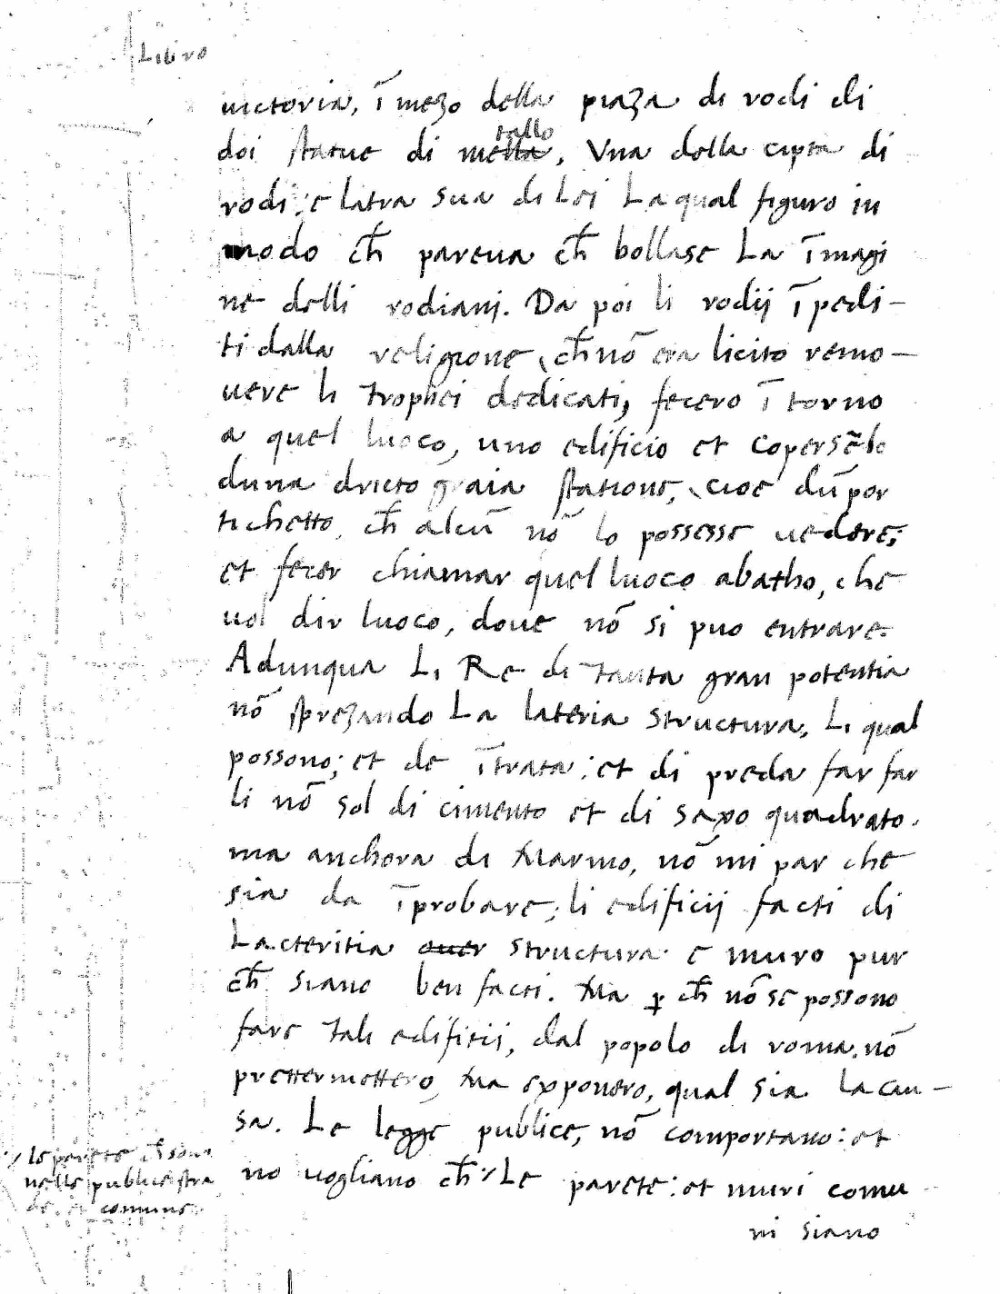 Libro
uictoria, ī mezo della piaza di rodi di
doi statue di metallo, Vna della cipta di
rodi: e latra sua di Lei La qual figuro in
modo ch̄ pareua ch̄ bollase La īmagi
ne delli rodiani. Da poi li rodij īpedi-
ti dalla religione, ch̄ nō era licito remo-
uere li trophei dedicati, fecero ī torno
a quel luoco, uno edificio et copersēlo
duna dricto graia statione, cioe dū por
tichetto, ch̄ alcū nō lo possesse uedere;
et fecer chiamar quel luoco abatho, che
uol dir luoco, doue nō si puo entrare.
Adunqua Li Re di tanta gran potentia
nō sprezando La lateria structura, Li qual
possono; et de ītrata: et di preda far far
li nō sol di cimento et di saxo quadrato.
ma anchora di Marmo, nō mi par che
sia da īprobare; li edificij facti di
Lacteritia ouer structura e muro pur
ch̄ siano ben facti. Ma p̱ ch̄ nō se possono
fare tali edificii, dal popolo di roma. nō
prettermettero, Ma exponero, qual sia la cau-
sa. Le legge publice, nō comportano: et
no uogliano ch̄ Le parete: et muri comu
ni siano
le parete ch̄ sono
nelle publice stra
de et comune